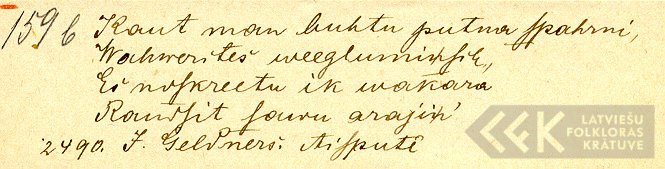 1596 Kaut man buhtu putna spahrni,
Wahwerites weeglumiņsch,
Es noskreetu ik wakara
Raudsit sawu arajiņ'
2490. J. Geldners. Aispute
LATVIEŠU
FOLKLORAS
KRĀTUVE